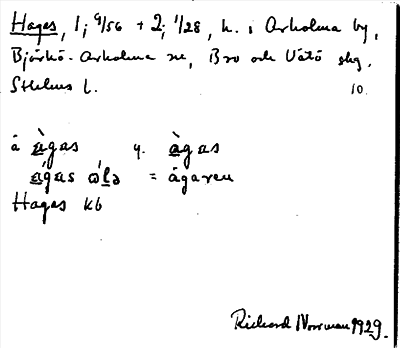 Hagas, 1; 9/56 + 2; 1/28, h. i Arholma by,
Björkö-Arholma sn, Bro och Vätö skg,
Sthlms l. 10.
å àgas y. àgas
ágas ὼlə = ägaren
Hagas kb
Richard Norrman 1929.